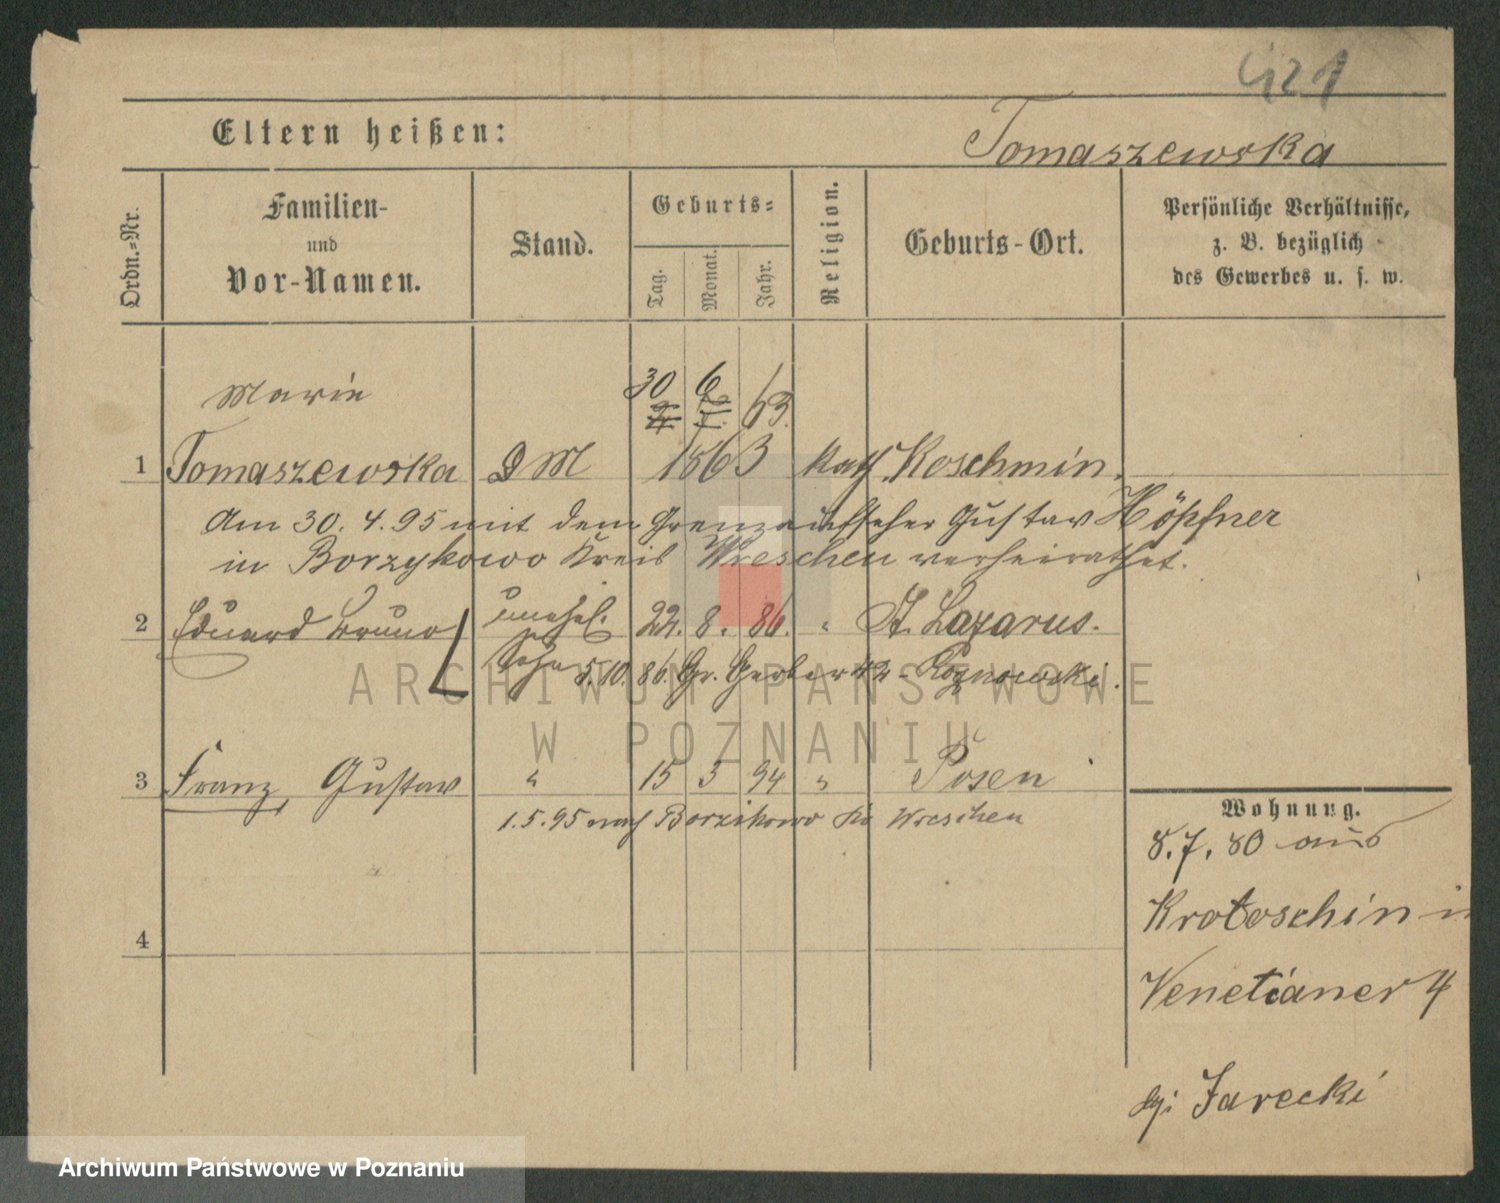 421
Eltern heißen:
Tomaszewska
Ordn.-Nr.
Familien-
und
Vor-Namen.
Stand.
Geburts-
Tag.
Monat.
Jahr.
Religion.
Geburts-Ort.
Persönliche Verhältnisse,
z. B. bezüglich
des Gewerbes u. s. w.
Marie 30 6 63.
1 Tomaszewska DM 1863 kath Koschmin.
Am 30. 4. 95 mit dem Grenzaufseher Gustav Höpfner
in Borzykowo Kreis Wreschen verheirathet.
2 Eduard Bruno unehel. 22. 8. 86. " St. Lazarus.
Sohn 5.10.86. Gr. Gerber 42
3 Franz, Gustav " 15 3 94 " Posen
1.5.95 nach Borzikowo Kr Wreschen
4
Wohnung.
8.7.80 aus
Krotoschin in
Venetianer 4
Jarecki
ARCHIWUM PAŃSTWOWE
W POZNANIU
Archiwum Państwowe w Poznaniu